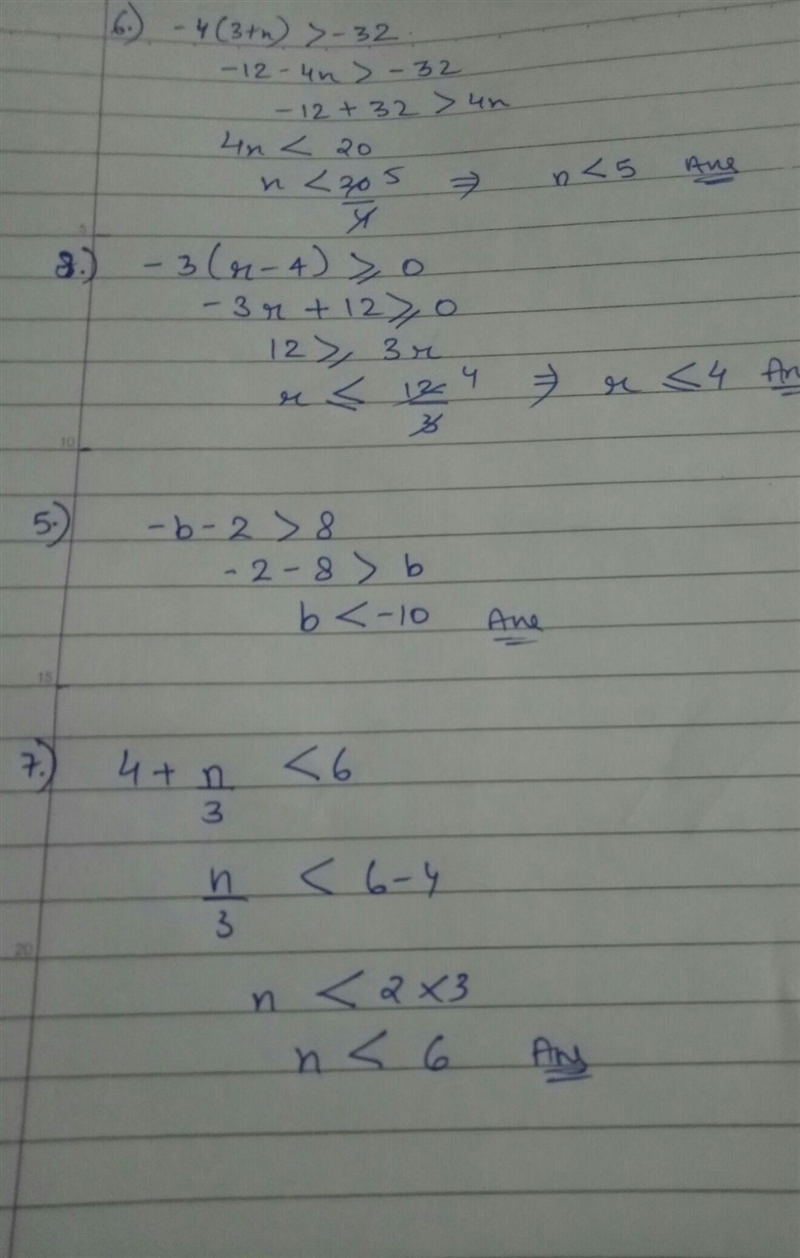 6.) -4(3+n) > -32
-12 - 4n > -32
-12 + 32 > 4n
4n < 20
n < 20/4 5 ⇒ n < 5 Ans
5
8.) -3(r-4) ⩾ 0
-3r + 12 ⩾ 0
12 ⩾ 3r
r ≤ 12/3 4 ⇒ r ≤ 4 An
10
5.) -b - 2 > 8
-2 - 8 > b
b < -10 Ans
15
7.) 4 + n/3 < 6
n/3 < 6-4
20
n < 2 × 3
n < 6 Ans